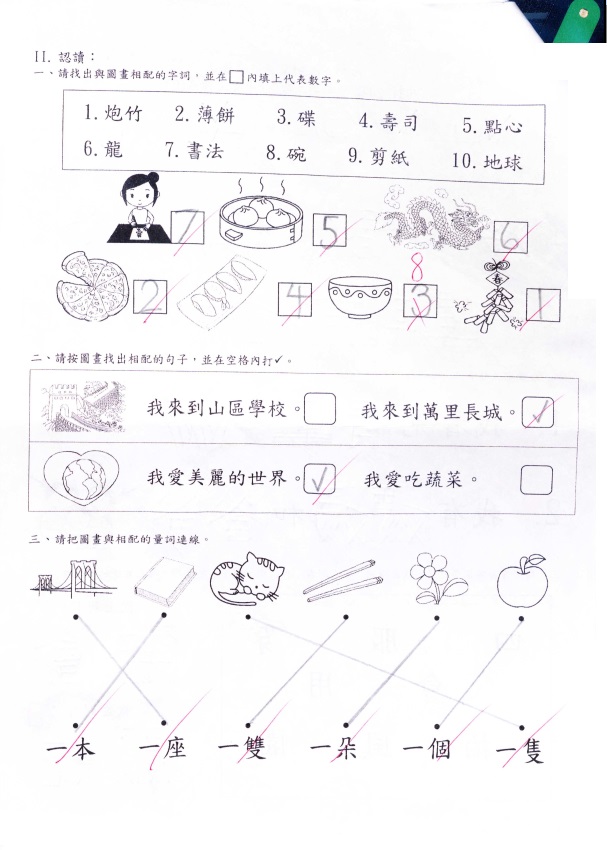 II. 認讀：
一、請找出與圖畫相配的字詞，並在□內填上代表數字。
1.炮竹 2.薄餅 3.碟 4.壽司 5.點心
6.龍 7.書法 8.碗 9.剪紙 10.地球
7 5 6
8
2 4 3 春 1
二、請按圖畫找出相配的句子，並在空格內打✓。
我來到山區學校。 我來到萬里長城。✓
我愛美麗的世界。✓ 我愛吃蔬菜。
三、請把圖畫與相配的量詞連線。
一本 一座 一雙 一朵 一個 一隻